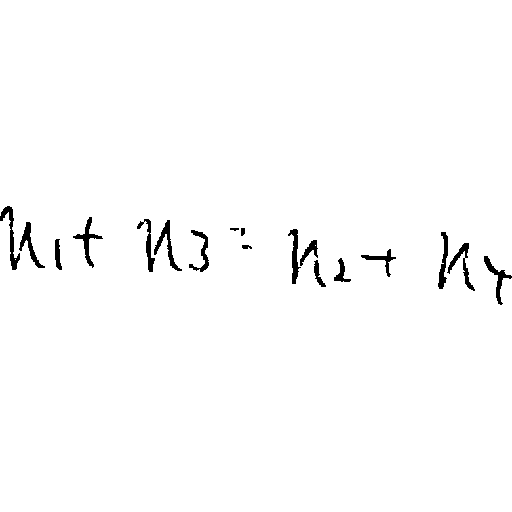 n₁ + n₃ = n₂ + n₄